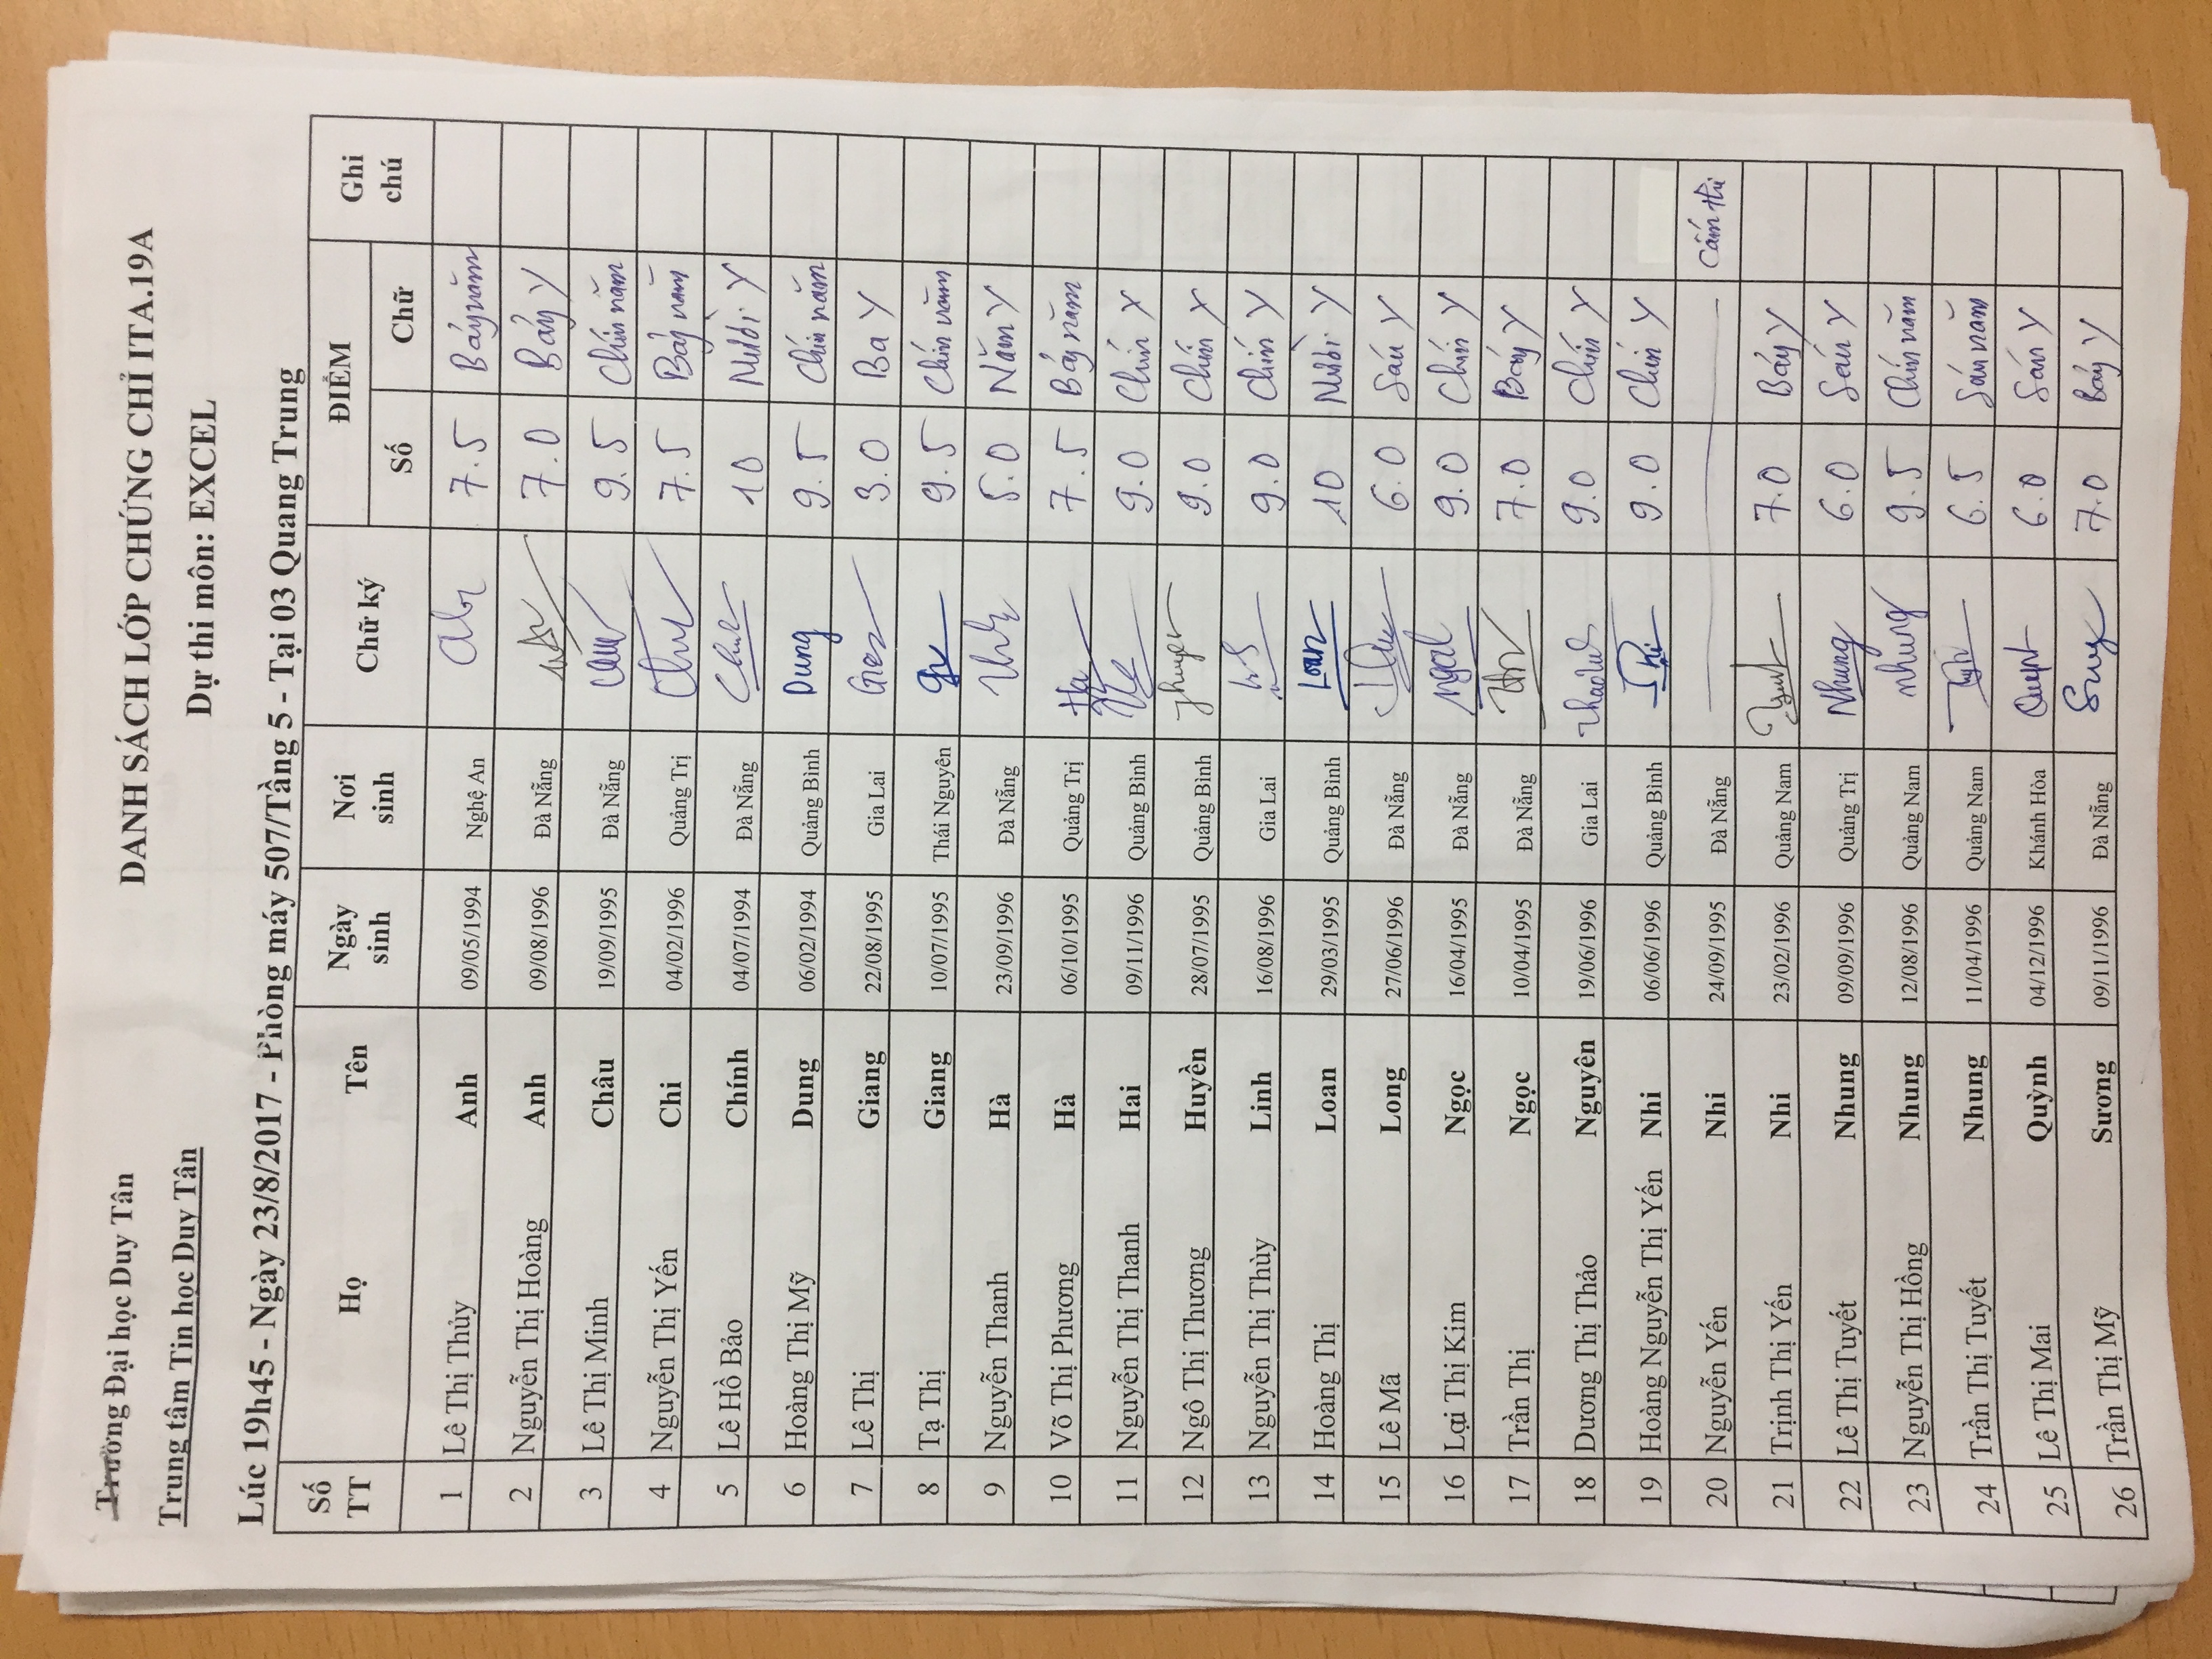 Trường Đại học Duy Tân
Trung tâm Tin học Duy Tân
DANH SÁCH LỚP CHỨNG CHỈ ITA.19A
Dự thi môn: EXCEL
Lúc 19h45 - Ngày 23/8/2017 - Phòng máy 507/Tầng 5 - Tại 03 Quang Trung
Số TT Họ Tên Ngày sinh Nơi sinh Chữ ký ĐIỂM Ghi chú
Số Chữ
1 Lê Thị Thủy Anh 09/05/1994 Nghệ An 7.5 Bảy năm
2 Nguyễn Thị Hoàng Anh 09/08/1996 Đà Nẵng 7.0 Bảy Y
3 Lê Thị Minh Châu 19/09/1995 Đà Nẵng 9.5 Chín năm
4 Nguyễn Thị Yến Chi 04/02/1996 Quảng Trị 7.5 Bảy năm
5 Lê Hồ Bảo Chính 04/07/1994 Đà Nẵng 10 Mười Y
6 Hoàng Thị Mỹ Dung 06/02/1994 Quảng Bình Dung 9.5 Chín năm
7 Lê Thị Giang 22/08/1995 Gia Lai 3.0 Ba Y
8 Tạ Thị Giang 10/07/1995 Thái Nguyên 9.5 Chín năm
9 Nguyễn Thanh Hà 23/09/1996 Đà Nẵng 5.0 Năm Y
10 Võ Thị Phương Hà 06/10/1995 Quảng Trị Ha 7.5 Bảy năm
11 Nguyễn Thị Thanh Hai 09/11/1996 Quảng Bình 9.0 Chín Y
12 Ngô Thị Thương Huyền 28/07/1995 Quảng Bình 9.0 Chín Y
13 Nguyễn Thị Thùy Linh 16/08/1996 Gia Lai 9.0 Chín Y
14 Hoàng Thị Loan 29/03/1995 Quảng Bình Loan 10 Mười Y
15 Lê Mã Long 27/06/1996 Đà Nẵng 6.0 Sáu Y
16 Lại Thị Kim Ngọc 16/04/1995 Đà Nẵng 9.0 Chín Y
17 Trần Thị Ngọc 10/04/1995 Đà Nẵng 7.0 Bảy Y
18 Dương Thị Thảo Nguyên 19/06/1996 Gia Lai 9.0 Chín Y
19 Hoàng Nguyễn Thị Yến Nhi 06/06/1996 Quảng Bình 9.0 Chín Y
20 Nguyễn Yến Nhi 24/09/1995 Đà Nẵng Cấm thi
21 Trịnh Thị Yến Nhi 23/02/1996 Quảng Nam 7.0 Bảy Y
22 Lê Thị Tuyết Nhung 09/09/1996 Quảng Trị Nhung 6.0 Sáu Y
23 Nguyễn Thị Hồng Nhung 12/08/1996 Quảng Nam nhung 9.5 Chín năm
24 Trần Thị Tuyết Nhung 11/04/1996 Quảng Nam 6.5 Sáu năm
25 Lê Thị Mai Quỳnh 04/12/1996 Khánh Hòa 6.0 Sáu Y
26 Trần Thị Mỹ Sương 09/11/1996 Đà Nẵng 7.0 Bảy Y